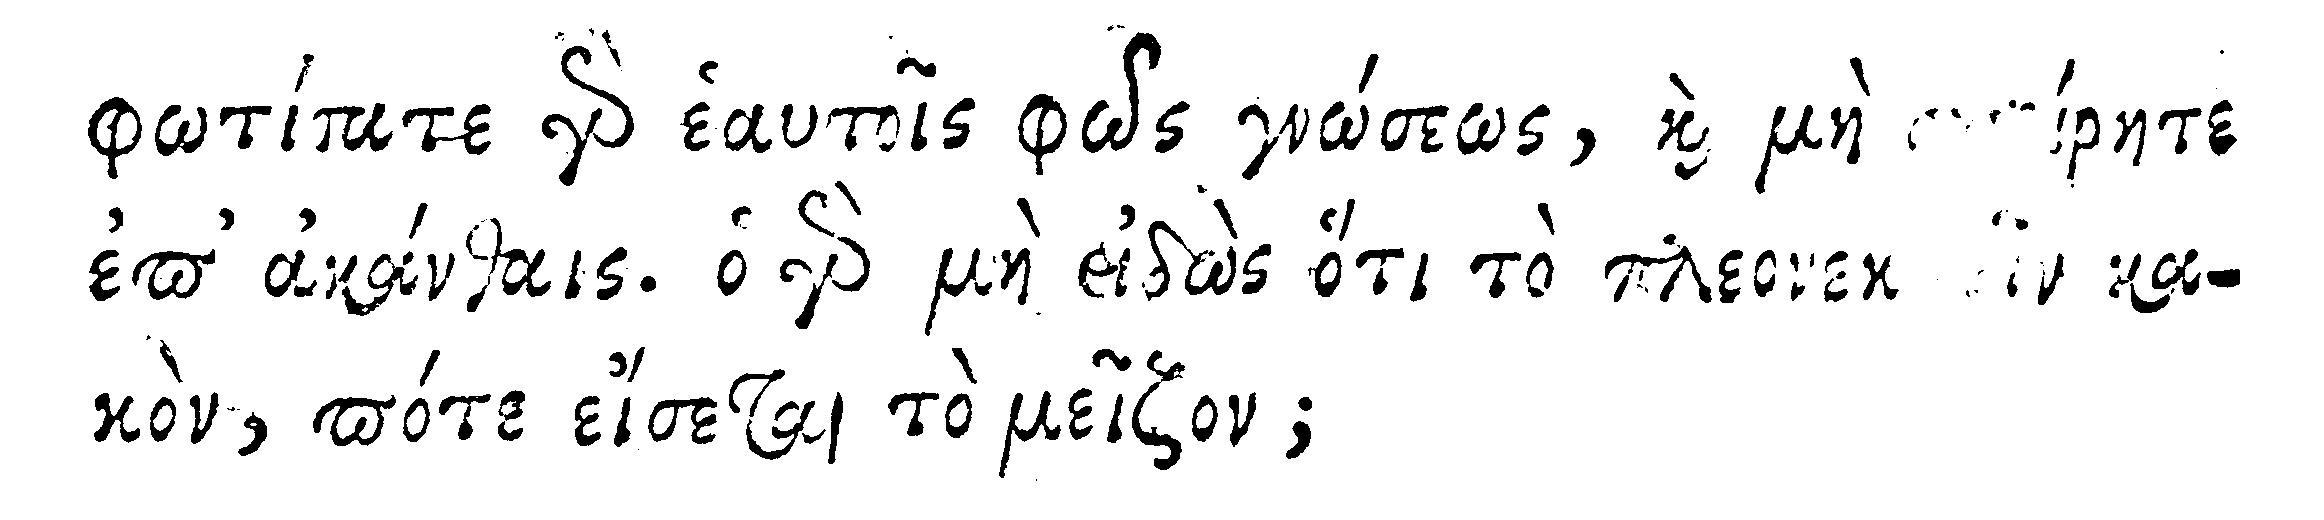 φωτίσατε γὰρ ἑαυτοῖς φῶς γνώσεως, καὶ μὴ σπείρητε
ἐπ' ἀκάνθαις. ὁ γὰρ μὴ εἰδὼς ὅτι τὸ πλεονεκτεῖν κα-
κὸν, πότε εἴσεται τὸ μεῖζον;